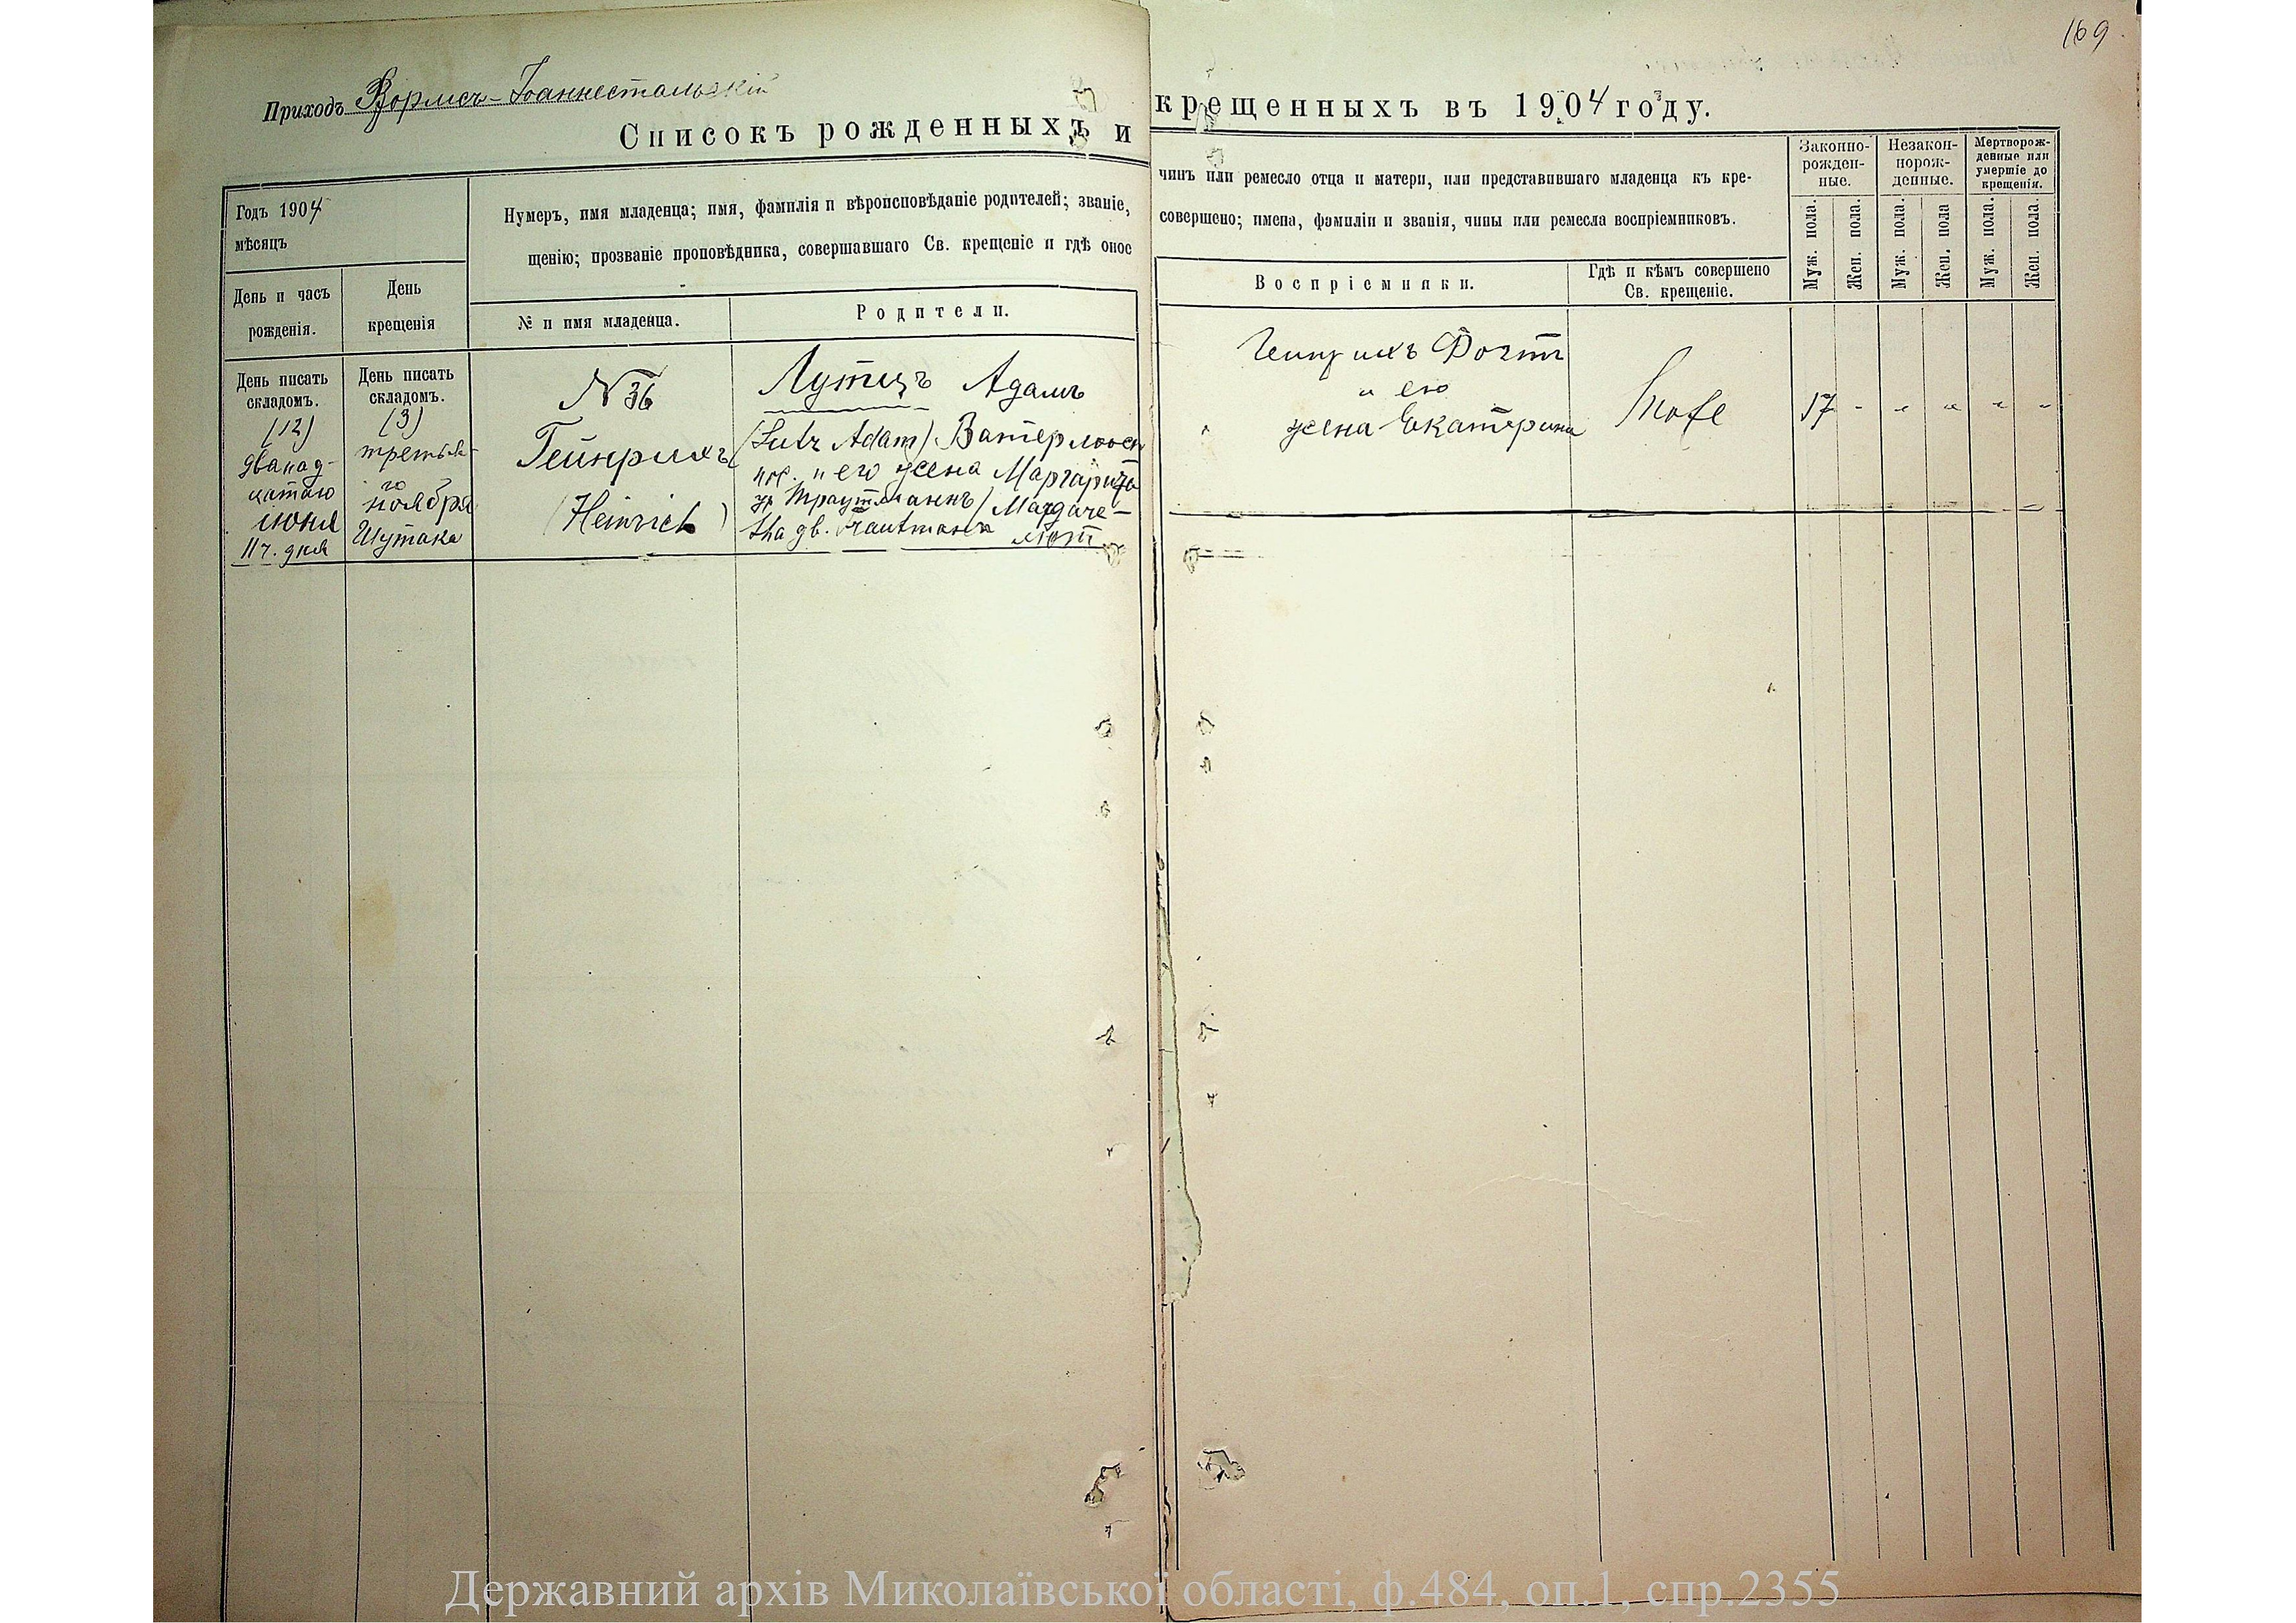 169.
Приходъ Вормсъ-Іоаннестальскій
Списокъ рожденныхъ и крещенныхъ въ 1904 году.
Годъ 1904
мѣсяцъ
День и часъ
рожденія.
День
крещенія
Нумеръ, имя младенца; имя, фамилія и вѣроисповѣданіе родителей; званіе, чинъ или ремесло отца и матери, или представившаго младенца къ кре-
щенію; прозваніе проповѣдника, совершавшаго Св. крещеніе и гдѣ оное совершено; имена, фамиліи и званія, чины или ремесла воспріемниковъ.
№ и имя младенца.
Родители.
Воспріемники.
Гдѣ и кѣмъ совершено
Св. крещеніе.
Законно-
рожден-
ные.
Незакон-
норож-
денные.
Мертворож-
денные или
умершіе до
крещенія.
Муж. пола.
Жен. пола.
Муж. пола.
Жен. пола
Муж. пола.
Жен. пола.
День писать
складомъ.
(12)
двенад-
цатаго
июня
11 ч. дня
День писать
складомъ.
(3)
третья-
го
ноября
N 36
Гейнрихъ
(Heinrich)
Лутцъ Адамъ
(Lutz Adam) Ватерлооск
пос. и его жена Маргарита
ур. Траутманнъ / Margare-
tha Trautmann
Гейнрихъ Фогтъ
и его
жена Екатерина
17 - - - - -
Державний архів Миколаївської області, ф.484, оп.1, спр.2355